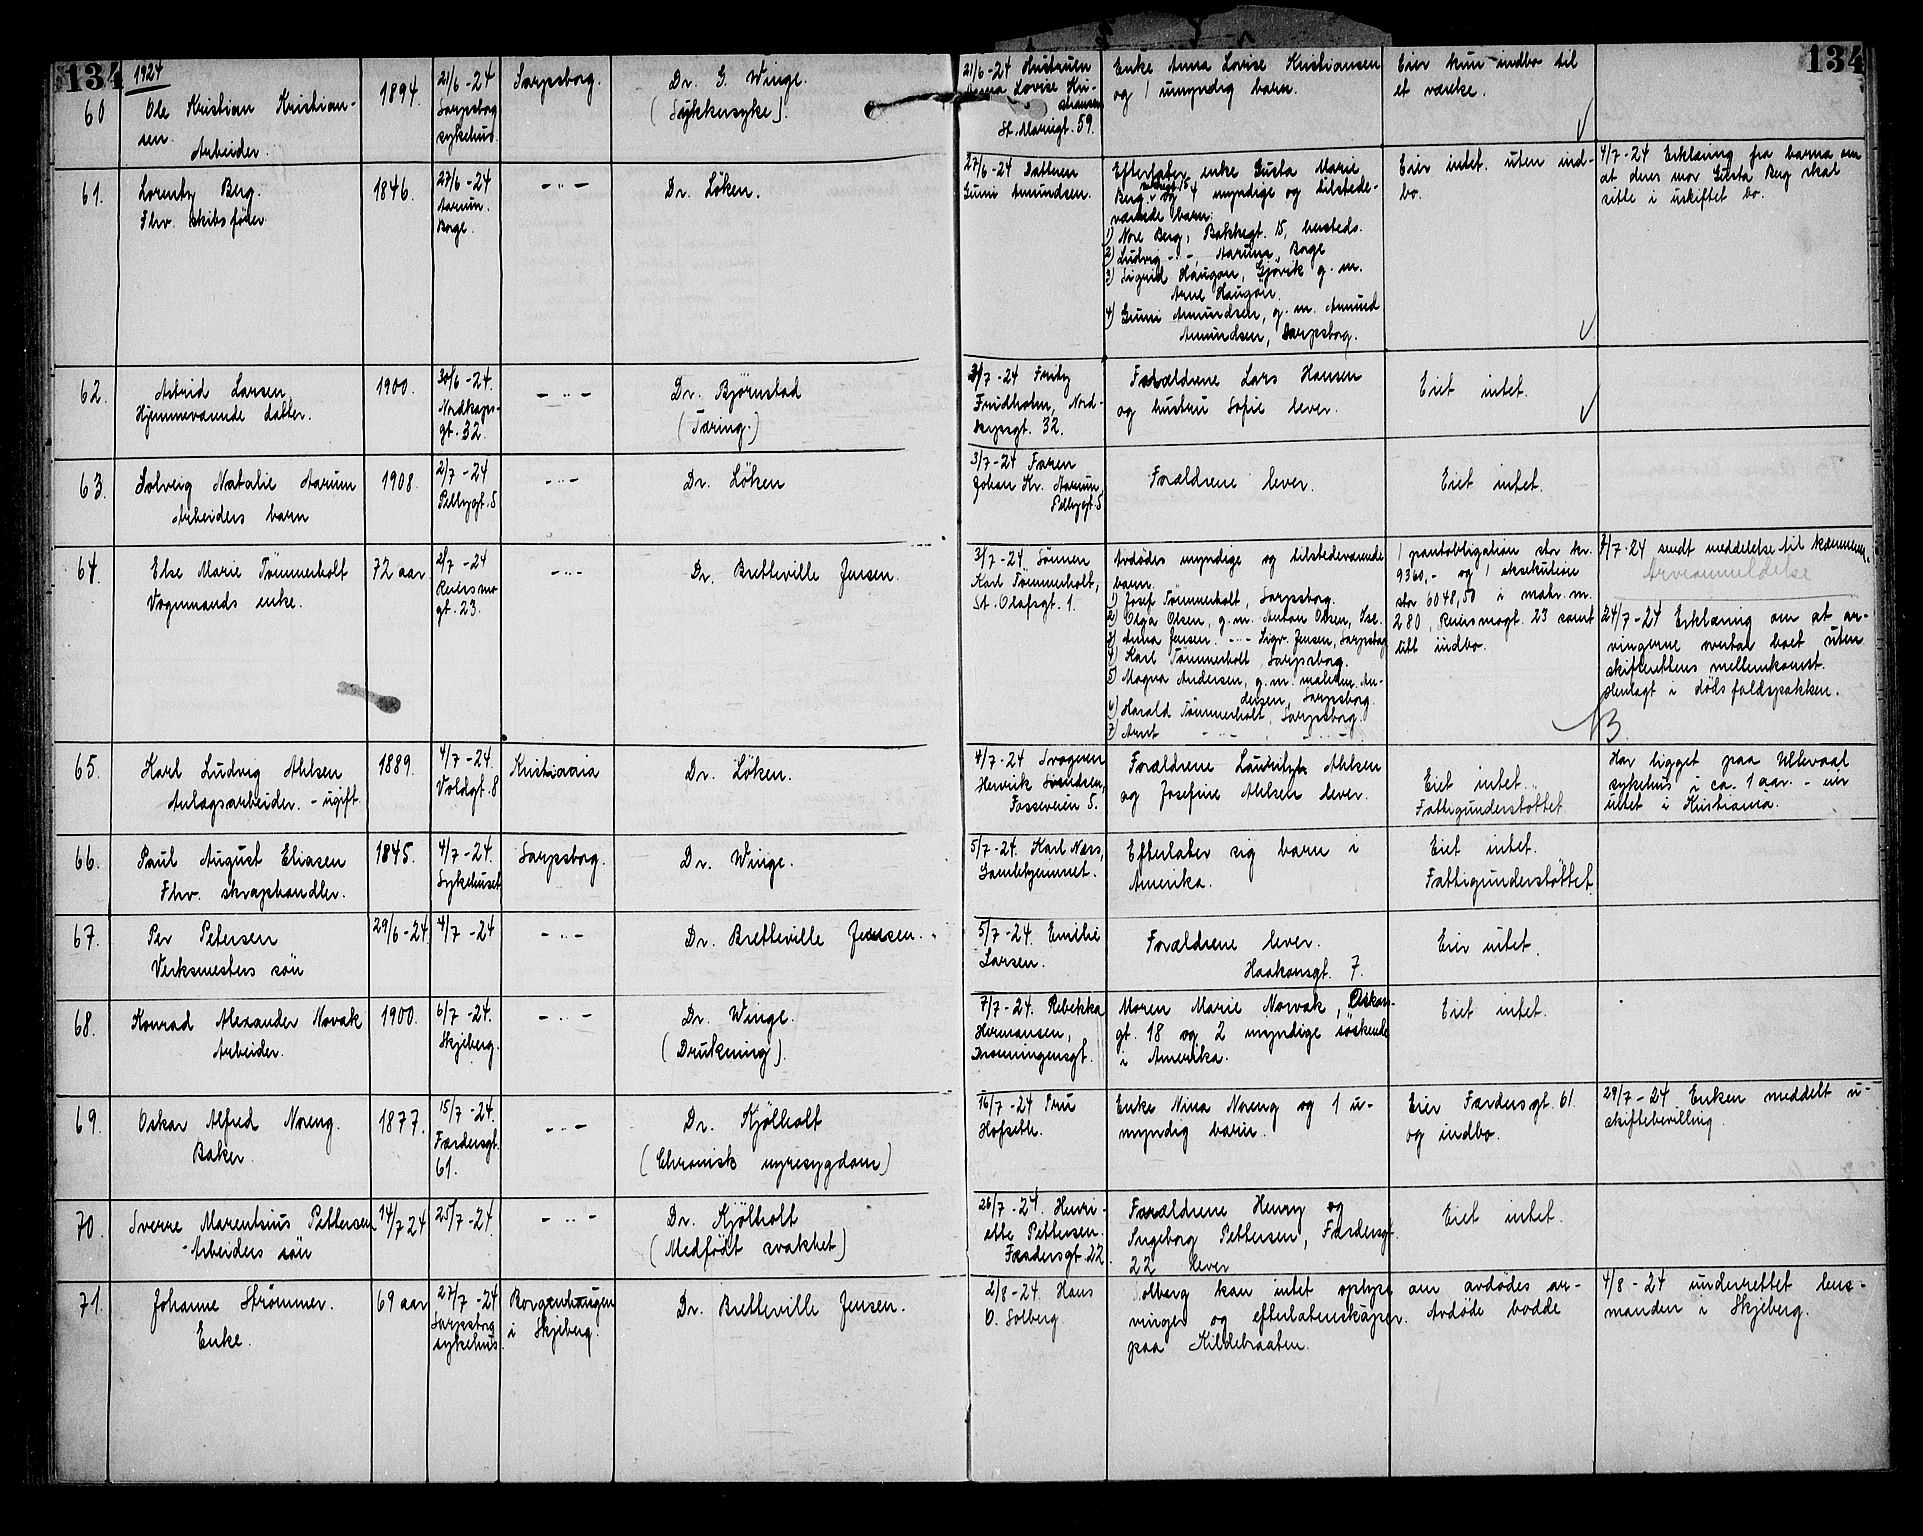 134
1924
134
60
Ole Kristian Kristian-
sen.
Arbeider.
1894.
21/6-24
Sarpsborg
sykehus
Sarpsborg.
Dr. G. Winge.
(Sukkersyke).
21/6-24 Hustruen
Anna Lovise Kri-
stiansen
St. Mariegt. 59.
Enke Anna Lovise Kristiansen
og 1 umyndig barn.
Eier kun indbo til
et værelse.
61.
Lorentz Berg.
Fhv. skibsfører
1846.
27/6-24
Aarum.
Borge.
- " -
Dr. Löken.
27/6-24 Datteren
Gunni Amundsen.
Efterlater enke Gusta Marie
Berg og 4 myndige og tilstede-
værende barn:
1) Nore Berg, Bakkegt. 15, hersteds.
2) Ludvig - " -, Aarum, Borge
3) Sigrid Haugan, Gjøvik g. m.
Arne Haugan.
4) Gunni Amundsen, g. m. Amund
Amundsen, Sarpsborg.
Eier intet uten ind-
bo.
4/7-24 Erklæring fra barna om
at deres mor Gusta Berg skal
sitte i uskiftet bo.
62.
Astrid Larsen
Hjemmeværende datter.
1900.
30/6-24.
Nordkaps-
gt. 32.
- " -
Dr. Bjørnstad
(Tæring.)
3/7-24 Fritz
Fridholm, Nord-
kapsgt. 32.
Forældrene Lars Hansen
og hustru Sofie lever.
Eiet intet.
63.
Solveig Natalie Aarum
Arbeiders barn
1908.
2/7-24
Pellygt. 5
- " -
Dr. Löken
3/7-24 Faren
Johan Kr. Aarum,
Pellygt. 5
Forældrene lever.
Eiet intet.
64.
Else Marie Tömmerholt
Vognmands enke.
72 aar
2/7-24
Reiersmo
gt. 23.
- " -
Dr. Bretteville Jensen.
3/7-24. Sönnen
Karl Tømmerholt,
St. Olafsgt. 1.
Avdødes myndige og tilstedeværende
barn
1) Josef Tömmerholt, Sarpsborg.
2) Olga Olsen, g. m. Anton Olsen, Ise.
3) Anna Jensen - " - Sigv. Jensen, Sarpsborg
4) Karl Tömmerholt, Sarpsborg.
5) Magna Andersen, g. m. maleren An-
dersen, Sarpsborg.
6) Harald Tømmerholt, Sarpsborg.
7) Arnt - " -, - " -
1 pantobligation stor kr.
9360,- og 1 eksekution
stor 6048,50 i matr. m.
280, Reiersmogt. 23 samt
litt indbo.
7/7-24 sendt meddelelse til kæmneren.
Arveanmeldelse
24/7-24 Erklæring om at ar-
vingerne overtar boet uten
skifterettens mellemkomst.
Henlagt i dödsfaldspakken.
NB.
65.
Karl Ludvig Ahlsen
Anlagsarbeider. - ugift
1889.
4/7-24.
Voldgt. 8
Kristiania
Dr. Löken.
4/7-24 Svogeren
Henrik Svendsen,
Fosseveien 5.
Forældrene Lauritz Ahlsen
og Josefine Ahlsen lever.
Eiet intet.
Fattigunderstøttet
Har ligget paa Ullevaal
sykehus i ca. 1 aar. - eier
intet i Kristiania.
66.
Paul August Eliasen
Fhv. skraphandler.
1845.
4/7-24.
Sykehuset
Sarpsborg.
Dr. Winge.
5/7-24. Karl Næs,
Gamlehjemmet.
Efterlater sig barn i
Amerika.
Eiet intet.
Fattigunderstøttet
67.
Per Petersen
Verksmesters sön
29/6-24
4/7-24
- " -
Dr. Bretteville Jensen.
5/7-24. Emilie
Larsen.
Forældrene lever.
Haakonsgt. 7.
Eier intet.
68.
Konrad Alexander Novak
Arbeider.
1900.
6/7-24.
Skjeberg.
- " -
Dr. Winge.
(Drukning).
7/7-24. Rebekka
Hermansen,
Dronningensgt.
Moren Marie Novak, Oskars-
gt. 18 og 2 myndige söskende
i Amerika.
Eiet intet.
69.
Oskar Alfred Noreng.
Baker
1877.
15/7-24.
Færdersgt.
61.
- " -
Dr. Kjölholt
(Chronisk nyresygdom)
16/7-24 Fru
Hofseth.
Enke Nina Noreng og 1 u-
myndig barn.
Eier Færdersgt. 61
og indbo.
29/7-24 Enken meddelt u-
skiftebevilling.
70.
Sverre Marentsius Pettersen
Arbeiders sön
14/7 24
25/7-24.
- " -
Dr. Kjölholt
(Medfödt svakhet)
26/7-24. Henri-
ette Pettersen.
Færdersgt. 22
Forældrene Henry og
Ingeborg Pettersen, Færdersgt.
22 lever
Eiet intet.
71.
Johanne Strömmer.
Enke.
69 aar
27/7-24
Sarpsborg
sykehus.
Borgenhaugen
i Skjeberg.
Dr. Bretteville Jensen.
2/8-24. Hans
O. Solberg.
Solberg kan intet oplyse om avdödes ar-
vinger og efterlatenskaper. Avdöde bodde
paa Kildebraaten.
4/8-24 underrettet lens-
manden i Skjeberg.